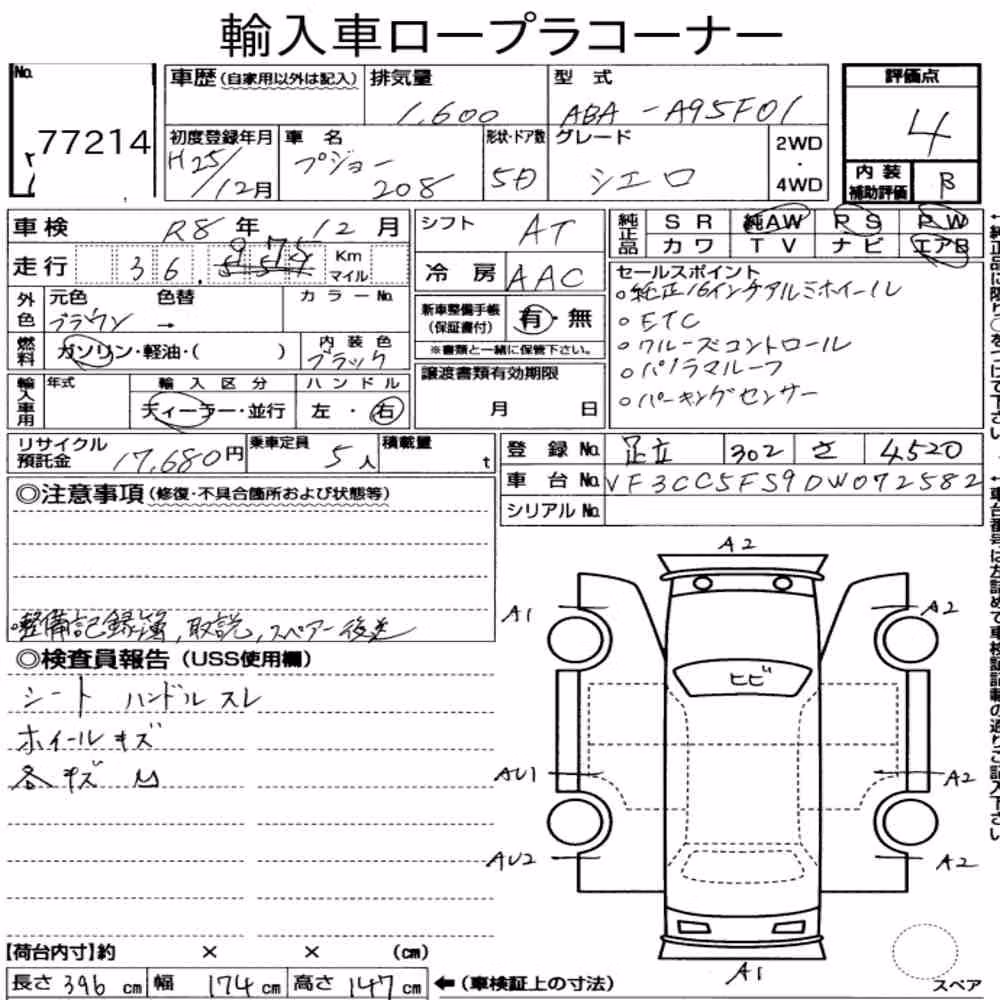 輸入車ロープラコーナー
No. 77214
車歴(自家用以外は記入)
排気量 1,600
型式 ABA-A95F01
評価点 4
初度登録年月 H25/12月
車名 プジョー 208
形状・ドア数 5D
グレード シエロ
2WD・4WD
内装補助評価 B
車検 R8年 12月
走行 36, 975 Km マイル
シフト AT
冷房 AAC
純正品 SR 純AW PS PW
カワ TV ナビ エアB
外色 元色 ブラウン 色替 → カラーNo.
燃料 ガソリン・軽油・( )
内装色 ブラック
新車整備手帳(保証書付) 有・無
※書類と一緒に保管下さい。
セールスポイント
○純正16インチアルミホイール
○ETC
○クルーズコントロール
○パノラマルーフ
○パーキングセンサー
輸入車用 年式 輸入区分 ディーラー・並行 ハンドル 左・右
譲渡書類有効期限 月 日
リサイクル預託金 17,680円
乗車定員 5人
積載量 t
登録No. 足立 302 さ 4520
車台No. VF3CC5FS9DW072582
シリアルNo.
◎注意事項(修復・不具合箇所および状態等)
・整備記録簿,取説,スペアー後送
◎検査員報告(USS使用欄)
シート ハンドルスレ
ホイールキズ
各キズ凹
A2
A1
A2
ヒビ
AU1
A2
AU2
A2
A1
スペア
【荷台内寸】約 × × (cm)
長さ 396 cm 幅 174 cm 高さ 147 cm ←(車検証上の寸法)
↑純正品に限り○をつけて下さい。
↑車台番号は左詰めで車検証記載の通りご記入下さい。